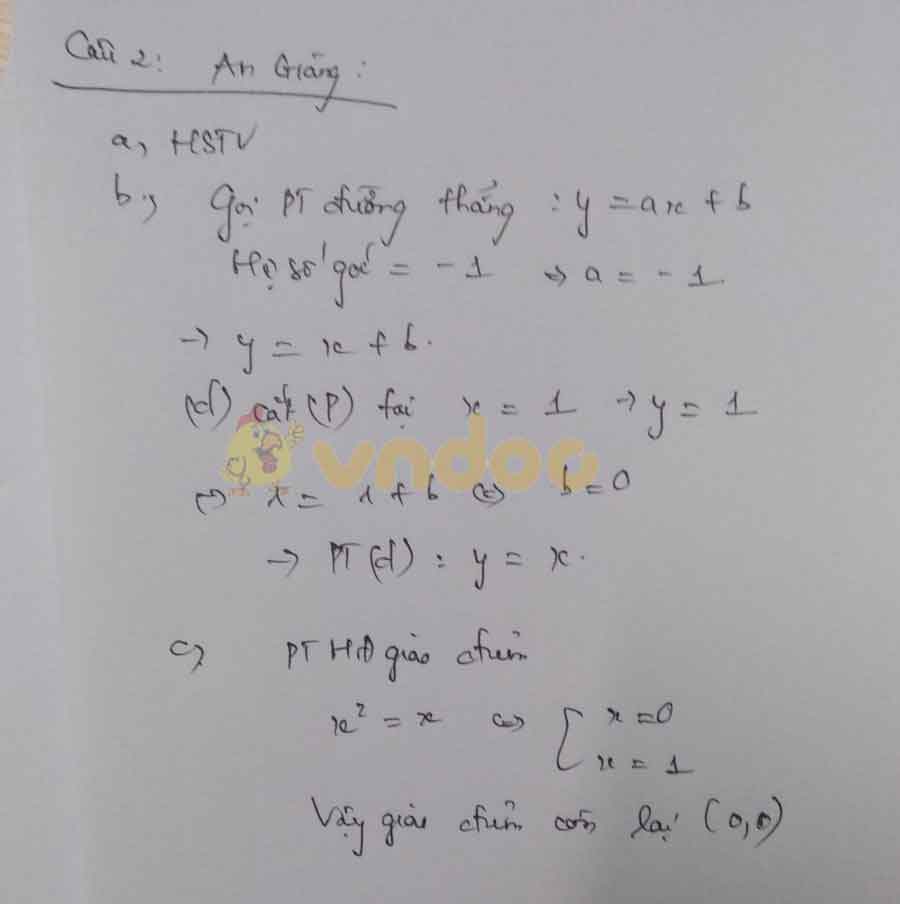 Câu 2: An Giang:
a, HSTV
b, Gọi PT đường thẳng : y = ax + b
Hệ số góc = -1 => a = -1
-> y = x + b.
(d) cắt (P) tại x = 1 -> y = 1
vndoc
<=> 1 = 1 + b <=> b = 0
-> PT (d) : y = x.
c, PT HĐ giao điểm
x² = x <=> [ x = 0
x = 1
Vậy giao điểm còn lại (0,0)